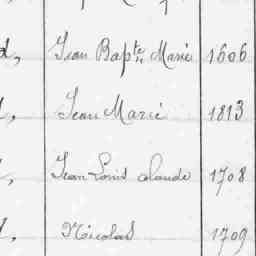 d, Jean Bapte Marie 1606
, Jean Marie 1813
, Jean Louis Claude 1708
, Nicolas 1709